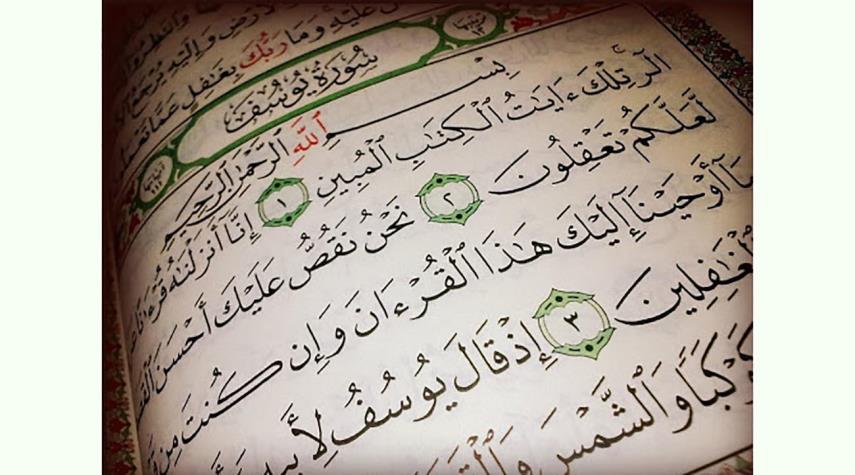 وَٱلْأَرْضِ وَإِلَيْهِ يُرْجَعُ
عَلَيْهِ وَمَا رَبُّكَ بِغَٰفِلٍ عَمَّا
سُورَةُ يُوسُفَ
بِسْمِ ٱللَّهِ ٱلرَّحْمَٰنِ ٱلرَّحِيمِ
الٓر تِلْكَ ءَايَٰتُ ٱلْكِتَٰبِ ٱلْمُبِينِ ١ إِنَّآ أَنزَلْنَٰهُ قُرْءَٰنًا
لَّعَلَّكُمْ تَعْقِلُونَ ٢ نَحْنُ نَقُصُّ عَلَيْكَ أَحْسَنَ
مَآ أَوْحَيْنَآ إِلَيْكَ هَٰذَا ٱلْقُرْءَانَ وَإِن كُنتَ مِن
ٱلْغَٰفِلِينَ ٣ إِذْ قَالَ يُوسُفُ
كَوْكَبًا وَٱلشَّمْسَ